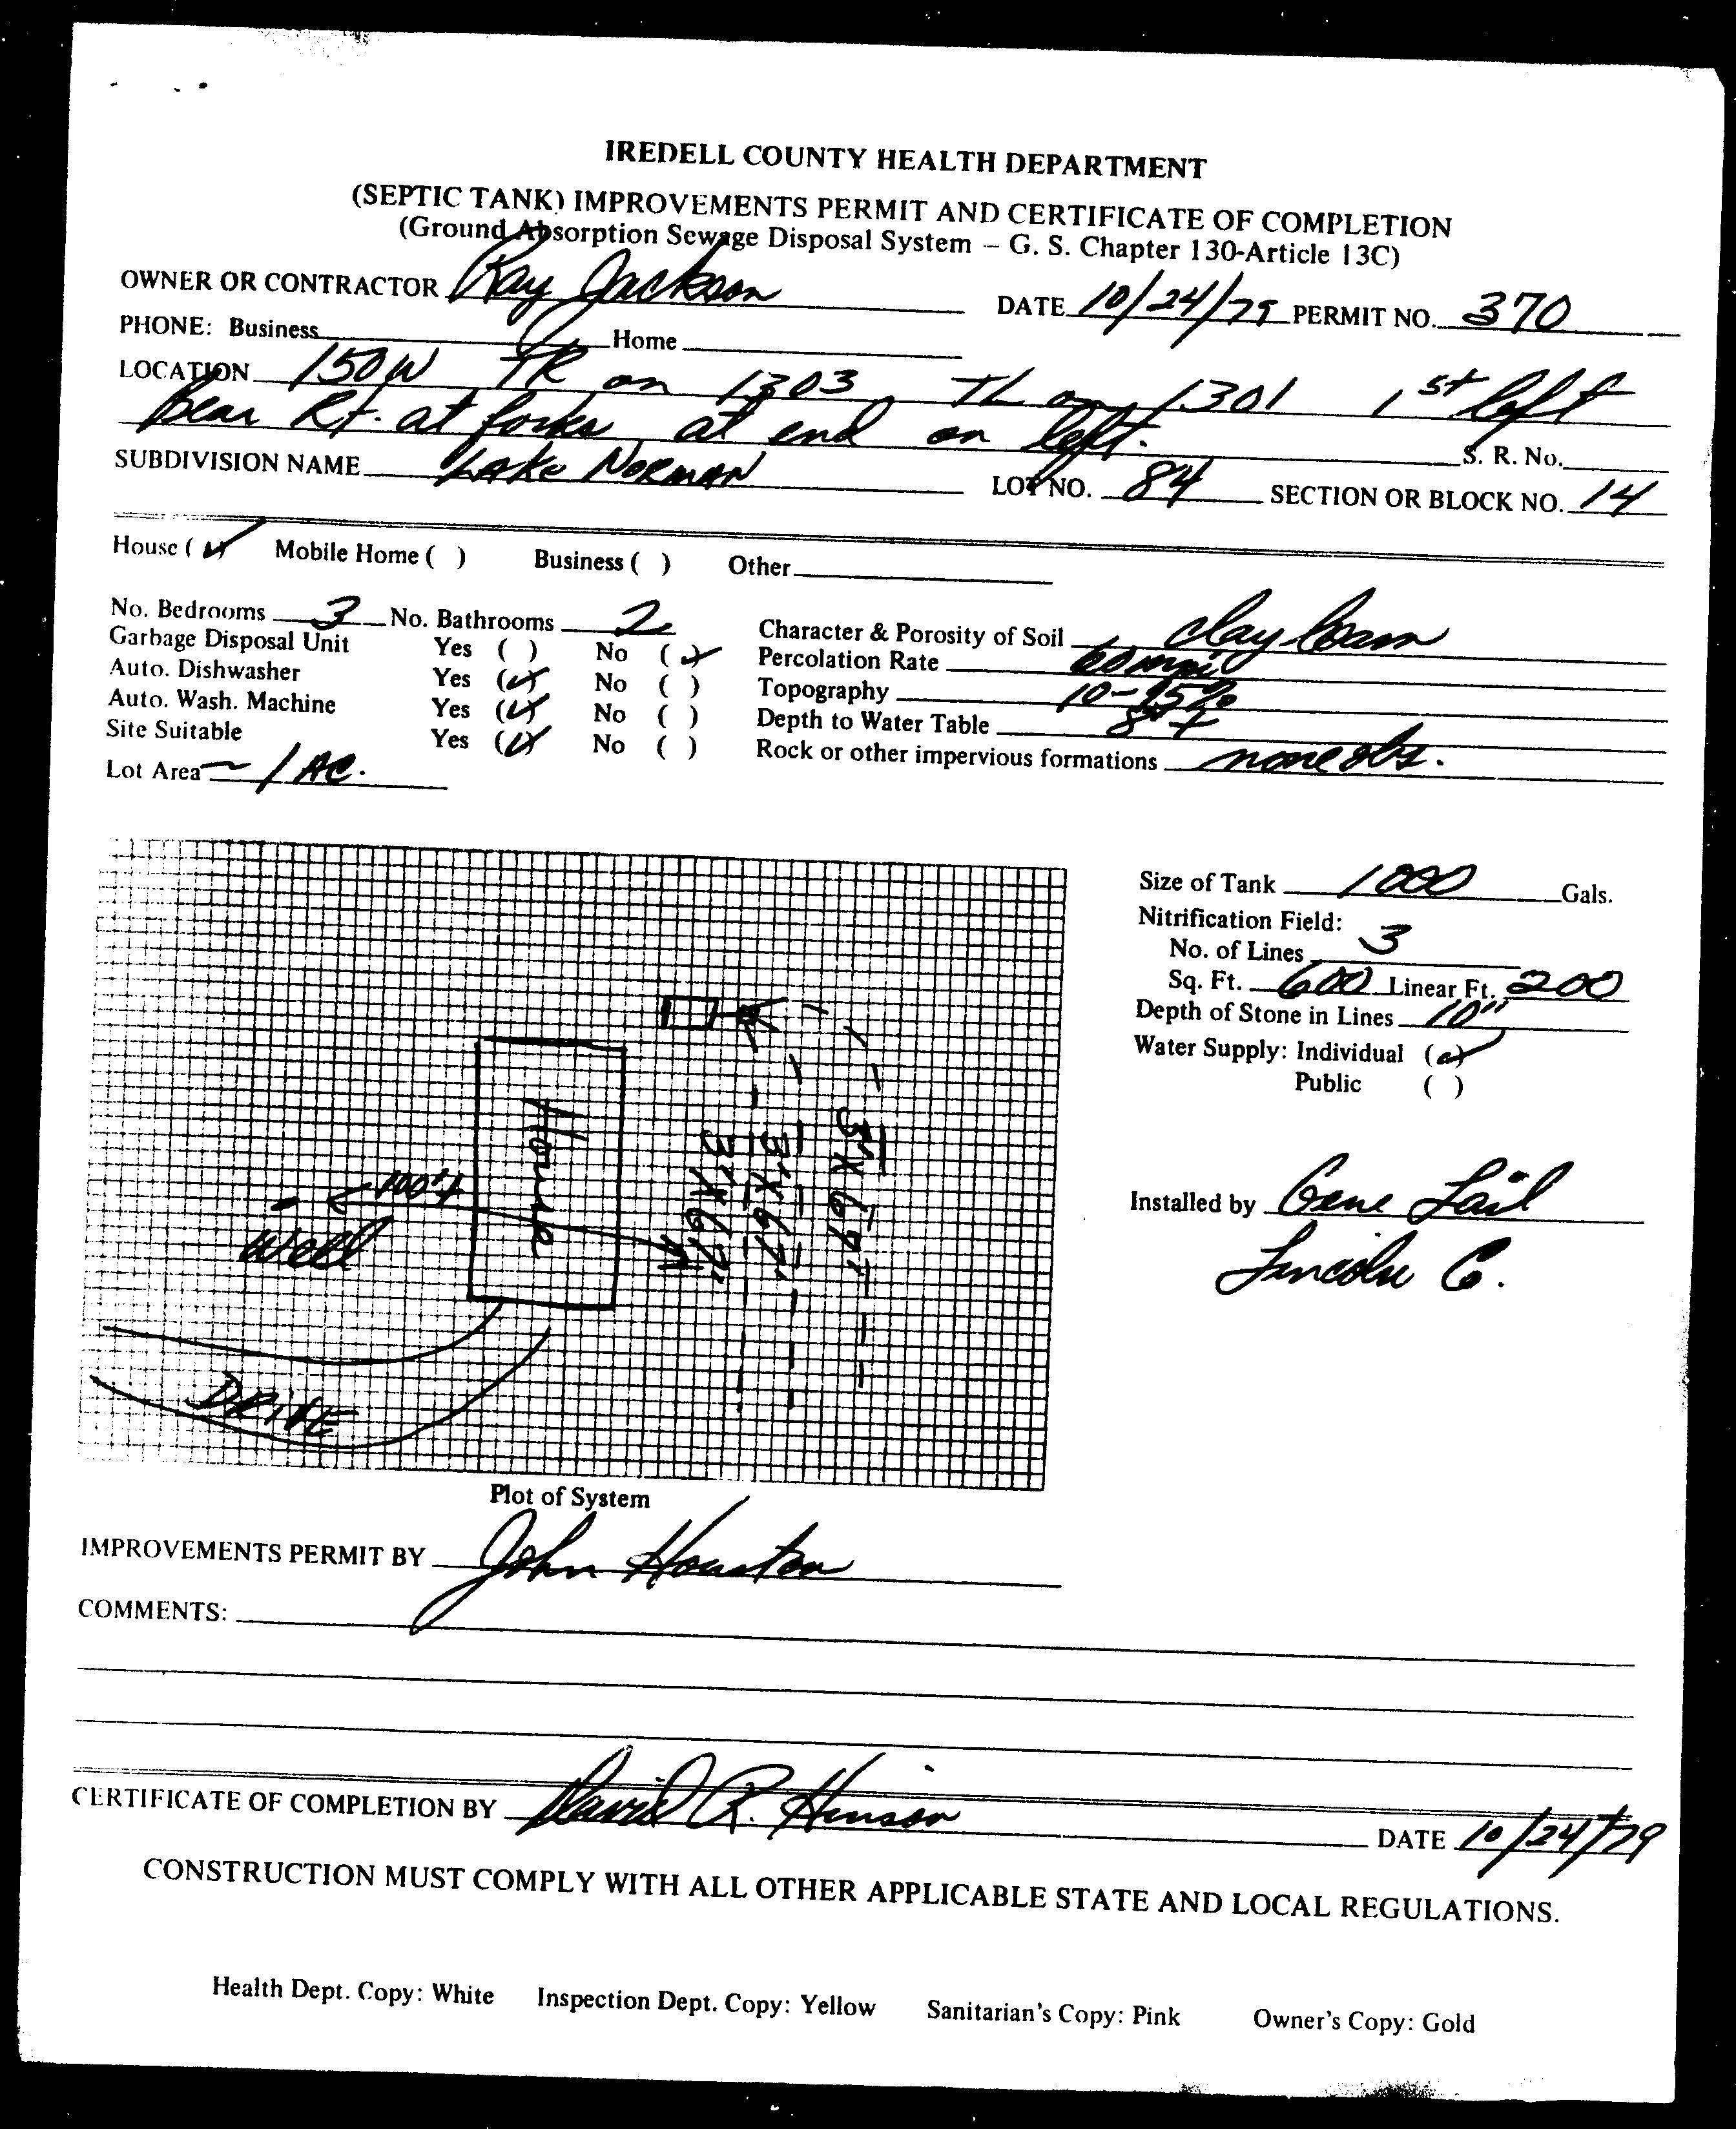 IREDELL COUNTY HEALTH DEPARTMENT
(SEPTIC TANK) IMPROVEMENTS PERMIT AND CERTIFICATE OF COMPLETION
(Ground Absorption Sewage Disposal System – G. S. Chapter 130-Article 13C)
OWNER OR CONTRACTOR Ray Jackson DATE 10/24/79 PERMIT NO. 370
PHONE: Business Home
LOCATION 150 W TR on 1303 TL on 1301 1st left
bear Rt. at forks at end on left. S. R. No.
SUBDIVISION NAME LAKE NORMAN LOT NO. 84 SECTION OR BLOCK NO. 14
House (✓) Mobile Home ( ) Business ( ) Other
No. Bedrooms 3 No. Bathrooms 2 Character & Porosity of Soil clay loam
Garbage Disposal Unit Yes ( ) No (✓) Percolation Rate 60 mpi
Auto. Dishwasher Yes (✓) No ( ) Topography 10-15%
Auto. Wash. Machine Yes (✓) No ( ) Depth to Water Table
Site Suitable Yes (✓) No ( ) Rock or other impervious formations none obs.
Lot Area ~ 1 AC.
Size of Tank 1000 Gals.
Nitrification Field:
No. of Lines 3
Sq. Ft. 600 Linear Ft. 200
Depth of Stone in Lines 10"
Water Supply: Individual (✓)
Public ( )
House
3'X67'
3'X67'
3'X67'
100'+
Well
DRIVE
Installed by Gene Lail
Lincoln Co.
Plot of System
IMPROVEMENTS PERMIT BY John Houston
COMMENTS:
CERTIFICATE OF COMPLETION BY David R. Hinson DATE 10/24/79
CONSTRUCTION MUST COMPLY WITH ALL OTHER APPLICABLE STATE AND LOCAL REGULATIONS.
Health Dept. Copy: White Inspection Dept. Copy: Yellow Sanitarian's Copy: Pink Owner's Copy: Gold